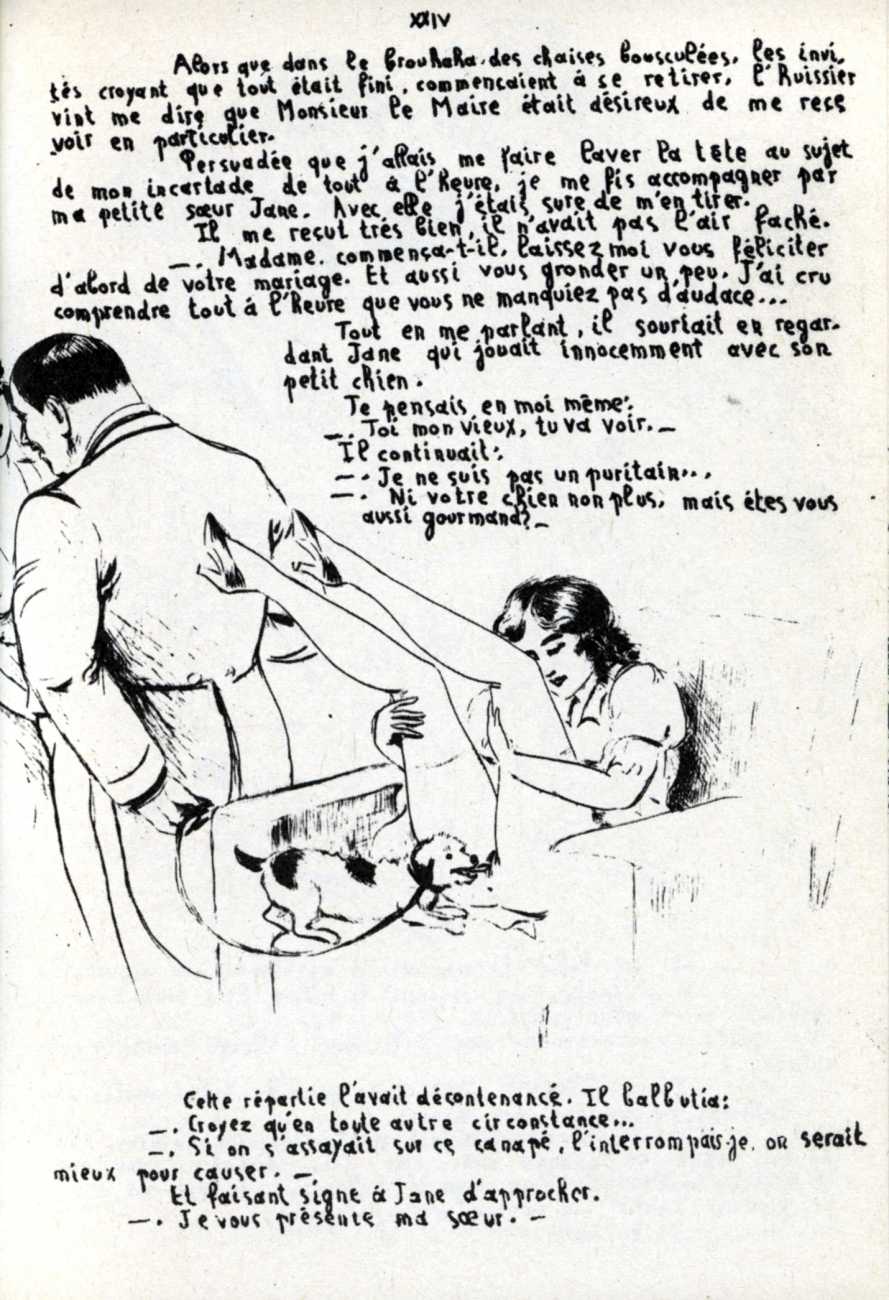 XXIV
Alors que dans le brouhaha des chaises bousculées, les invi.
tés croyant que tout était fini, commencaient à se retirer, l'huissier
vint me dire que Monsieur le Maire était désireux de me rece
voir en particulier.
Persuadée que j'allais me faire laver la tête au sujet
de mon incartade de tout à l'heure, je me fis accompagner par
ma petite sœur Jane. Avec elle j'étais sure de m'en tirer.
Il me reçut très bien, il n'avait pas l'air faché.
—. Madame, commença-t-il, laissez moi vous féliciter
d'abord de votre mariage. Et aussi vous gronder un peu. J'ai cru
comprendre tout à l'heure que vous ne manquiez pas d'audace...
Tout en me parlant, il souriait en regar-
dant Jane qui jouait innocemment avec son
petit chien.
Je pensais en moi même:
—. Toi mon vieux, tu va voir. —
Il continuait:
—. Je ne suis pas un puritain...
—. Ni votre chien non plus, mais êtes vous
aussi gourmand? —
Cette répartie l'avait décontenancé. Il balbutia:
—. Croyez qu'en toute autre circonstance...
—. Si on s'assayait sur ce canapé, l'interrompais-je, on serait
mieux pour causer. —.
Et faisant signe à Jane d'approcher.
—. Je vous présente ma sœur. —